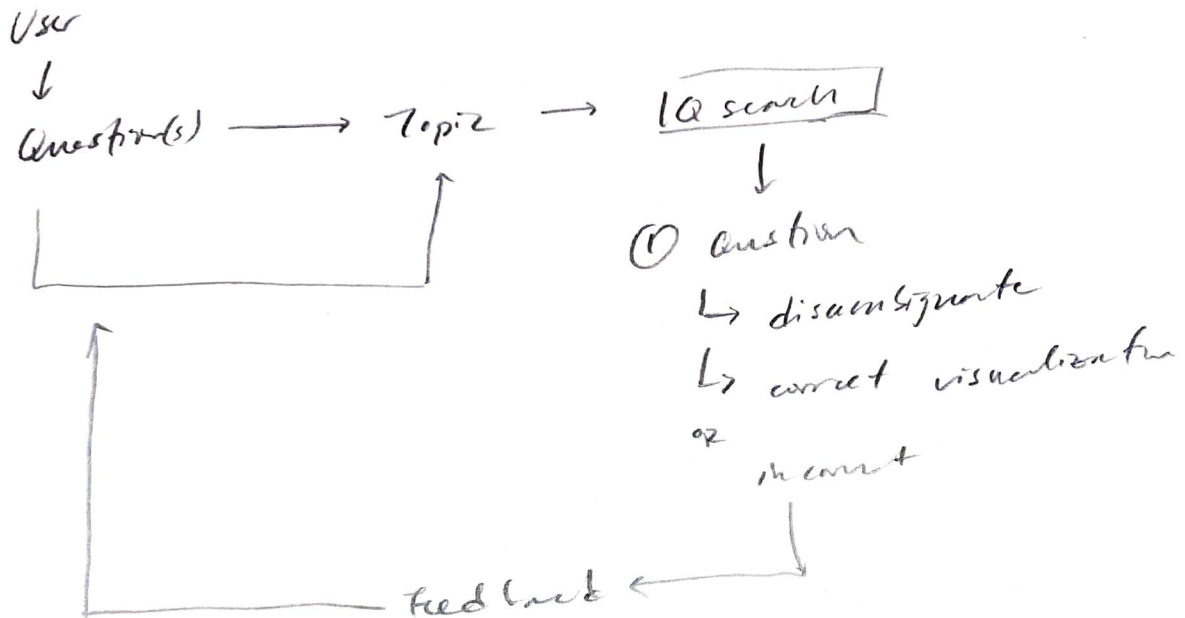 User
Question(s) Topic IQ search
① Question
disambiguate
correct visualization
or
incorrect
Feedback